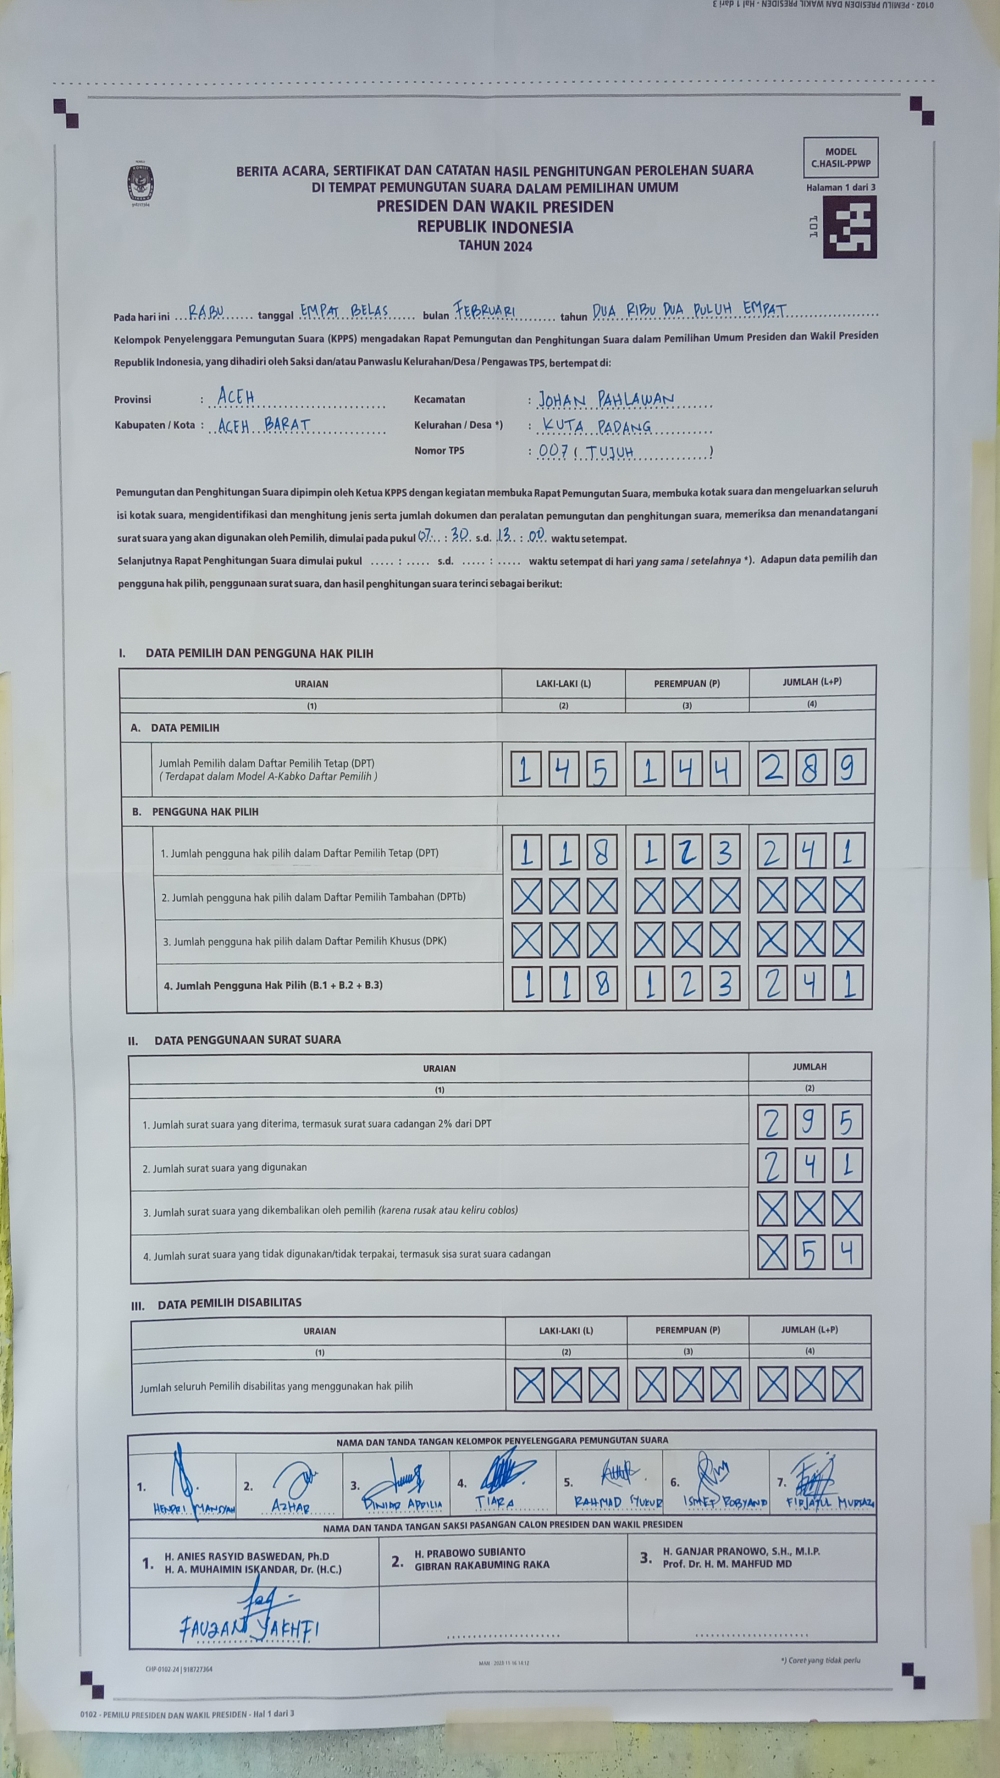 0102 - PEMILU PRESIDEN DAN WAKIL PRESIDEN - Hal 1 dari 3
MODEL
C.HASIL-PPWP
Halaman 1 dari 3
BERITA ACARA, SERTIFIKAT DAN CATATAN HASIL PENGHITUNGAN PEROLEHAN SUARA
DI TEMPAT PEMUNGUTAN SUARA DALAM PEMILIHAN UMUM
PRESIDEN DAN WAKIL PRESIDEN
REPUBLIK INDONESIA
TAHUN 2024
101
Pada hari ini RABU tanggal EMPAT BELAS bulan FEBRUARI tahun DUA RIBU DUA PULUH EMPAT
Kelompok Penyelenggara Pemungutan Suara (KPPS) mengadakan Rapat Pemungutan dan Penghitungan Suara dalam Pemilihan Umum Presiden dan Wakil Presiden
Republik Indonesia, yang dihadiri oleh Saksi dan/atau Panwaslu Kelurahan/Desa / Pengawas TPS, bertempat di:
Provinsi : ACEH Kecamatan : JOHAN PAHLAWAN
Kabupaten / Kota : ACEH BARAT Kelurahan / Desa *) : KUTA PADANG
Nomor TPS : 007 ( TUJUH )
Pemungutan dan Penghitungan Suara dipimpin oleh Ketua KPPS dengan kegiatan membuka Rapat Pemungutan Suara, membuka kotak suara dan mengeluarkan seluruh
isi kotak suara, mengidentifikasi dan menghitung jenis serta jumlah dokumen dan peralatan pemungutan dan penghitungan suara, memeriksa dan menandatangani
surat suara yang akan digunakan oleh Pemilih, dimulai pada pukul 07 : 30 s.d. 13 : 00 waktu setempat.
Selanjutnya Rapat Penghitungan Suara dimulai pukul ..... : ..... s.d. ..... : ..... waktu setempat di hari yang sama / setelahnya *). Adapun data pemilih dan
pengguna hak pilih, penggunaan surat suara, dan hasil penghitungan suara terinci sebagai berikut:
I. DATA PEMILIH DAN PENGGUNA HAK PILIH
URAIAN LAKI-LAKI (L) PEREMPUAN (P) JUMLAH (L+P)
(1) (2) (3) (4)
A. DATA PEMILIH
Jumlah Pemilih dalam Daftar Pemilih Tetap (DPT) 1 4 5 1 4 4 2 8 9
( Terdapat dalam Model A-Kabko Daftar Pemilih )
B. PENGGUNA HAK PILIH
1. Jumlah pengguna hak pilih dalam Daftar Pemilih Tetap (DPT) 1 1 8 1 2 3 2 4 1
2. Jumlah pengguna hak pilih dalam Daftar Pemilih Tambahan (DPTb) X X X X X X X X X
3. Jumlah pengguna hak pilih dalam Daftar Pemilih Khusus (DPK) X X X X X X X X X
4. Jumlah Pengguna Hak Pilih (B.1 + B.2 + B.3) 1 1 8 1 2 3 2 4 1
II. DATA PENGGUNAAN SURAT SUARA
URAIAN JUMLAH
(1) (2)
1. Jumlah surat suara yang diterima, termasuk surat suara cadangan 2% dari DPT 2 9 5
2. Jumlah surat suara yang digunakan 2 4 1
3. Jumlah surat suara yang dikembalikan oleh pemilih (karena rusak atau keliru coblos) X X X
4. Jumlah surat suara yang tidak digunakan/tidak terpakai, termasuk sisa surat suara cadangan X 5 4
III. DATA PEMILIH DISABILITAS
URAIAN LAKI-LAKI (L) PEREMPUAN (P) JUMLAH (L+P)
(1) (2) (3) (4)
Jumlah seluruh Pemilih disabilitas yang menggunakan hak pilih X X X X X X X X X
NAMA DAN TANDA TANGAN KELOMPOK PENYELENGGARA PEMUNGUTAN SUARA
1. 2. 3. 4. 5. 6. 7.
AZHAR TIARA RAHMAD
NAMA DAN TANDA TANGAN SAKSI PASANGAN CALON PRESIDEN DAN WAKIL PRESIDEN
1. H. ANIES RASYID BASWEDAN, Ph.D
H. A. MUHAIMIN ISKANDAR, Dr. (H.C.)
2. H. PRABOWO SUBIANTO
GIBRAN RAKABUMING RAKA
3. H. GANJAR PRANOWO, S.H., M.I.P.
Prof. Dr. H. M. MAHFUD MD
FAUZAN
CHP-0102-24 | 918727364
*) Coret yang tidak perlu
0102 - PEMILU PRESIDEN DAN WAKIL PRESIDEN - Hal 1 dari 3